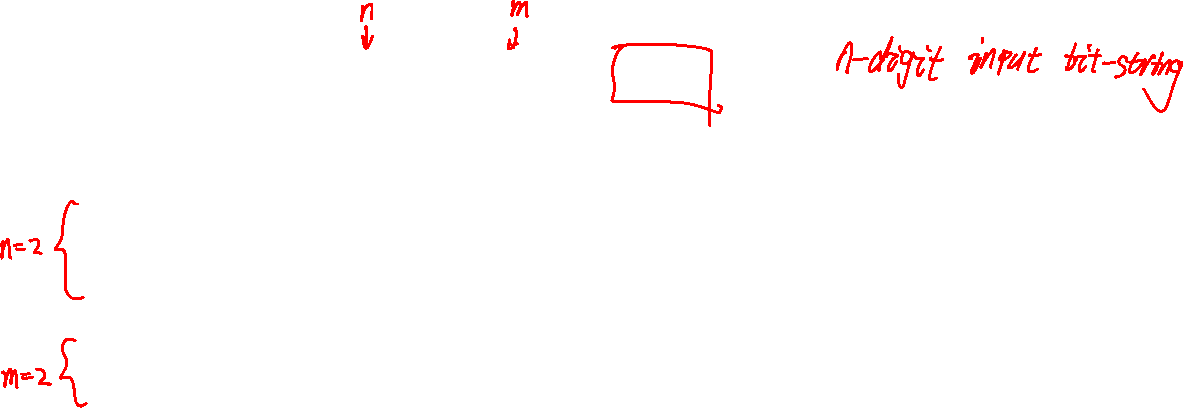 n m
n-digit input bit-string
n=2
m=2